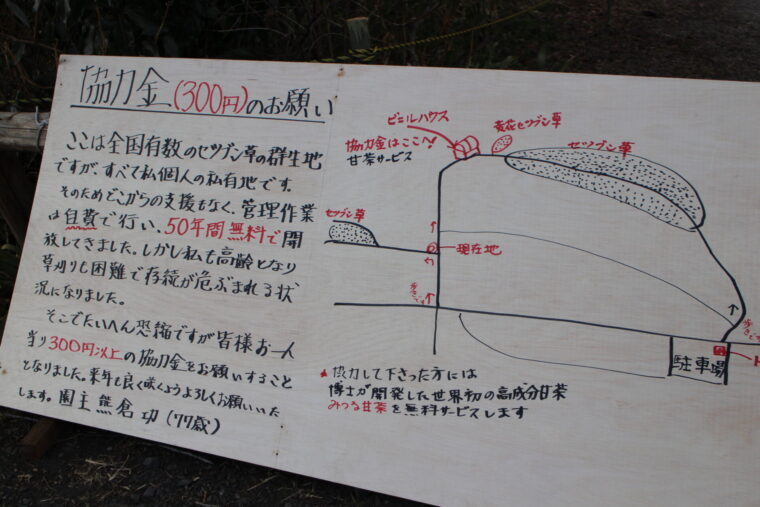 協力金(300円)のお願い
ここは全国有数のセツブン草の群生地
ですが、すべて私個人の私有地です。
そのためどこからの支援もなく、管理作業
は自費で行い、50年間無料で開
放してきました。しかし私も高齢となり
草刈りも困難で存続が危ぶまれる状
況になりました。
そこでたいへん恐縮ですが皆様お一人
当り300円以上の協力金をお願いすること
となりました。来年も良く咲くようよろしくお願いいた
します。園主 熊倉功(77歳)
ビニルハウス
協力金はここへ!
甘茶サービス
黄花セツブン草
セツブン草
セツブン草
現在地
歩き
歩き
駐車場
★協力して下さった方には
博士が開発した世界初の高成分甘茶
みつる甘茶を無料サービスします